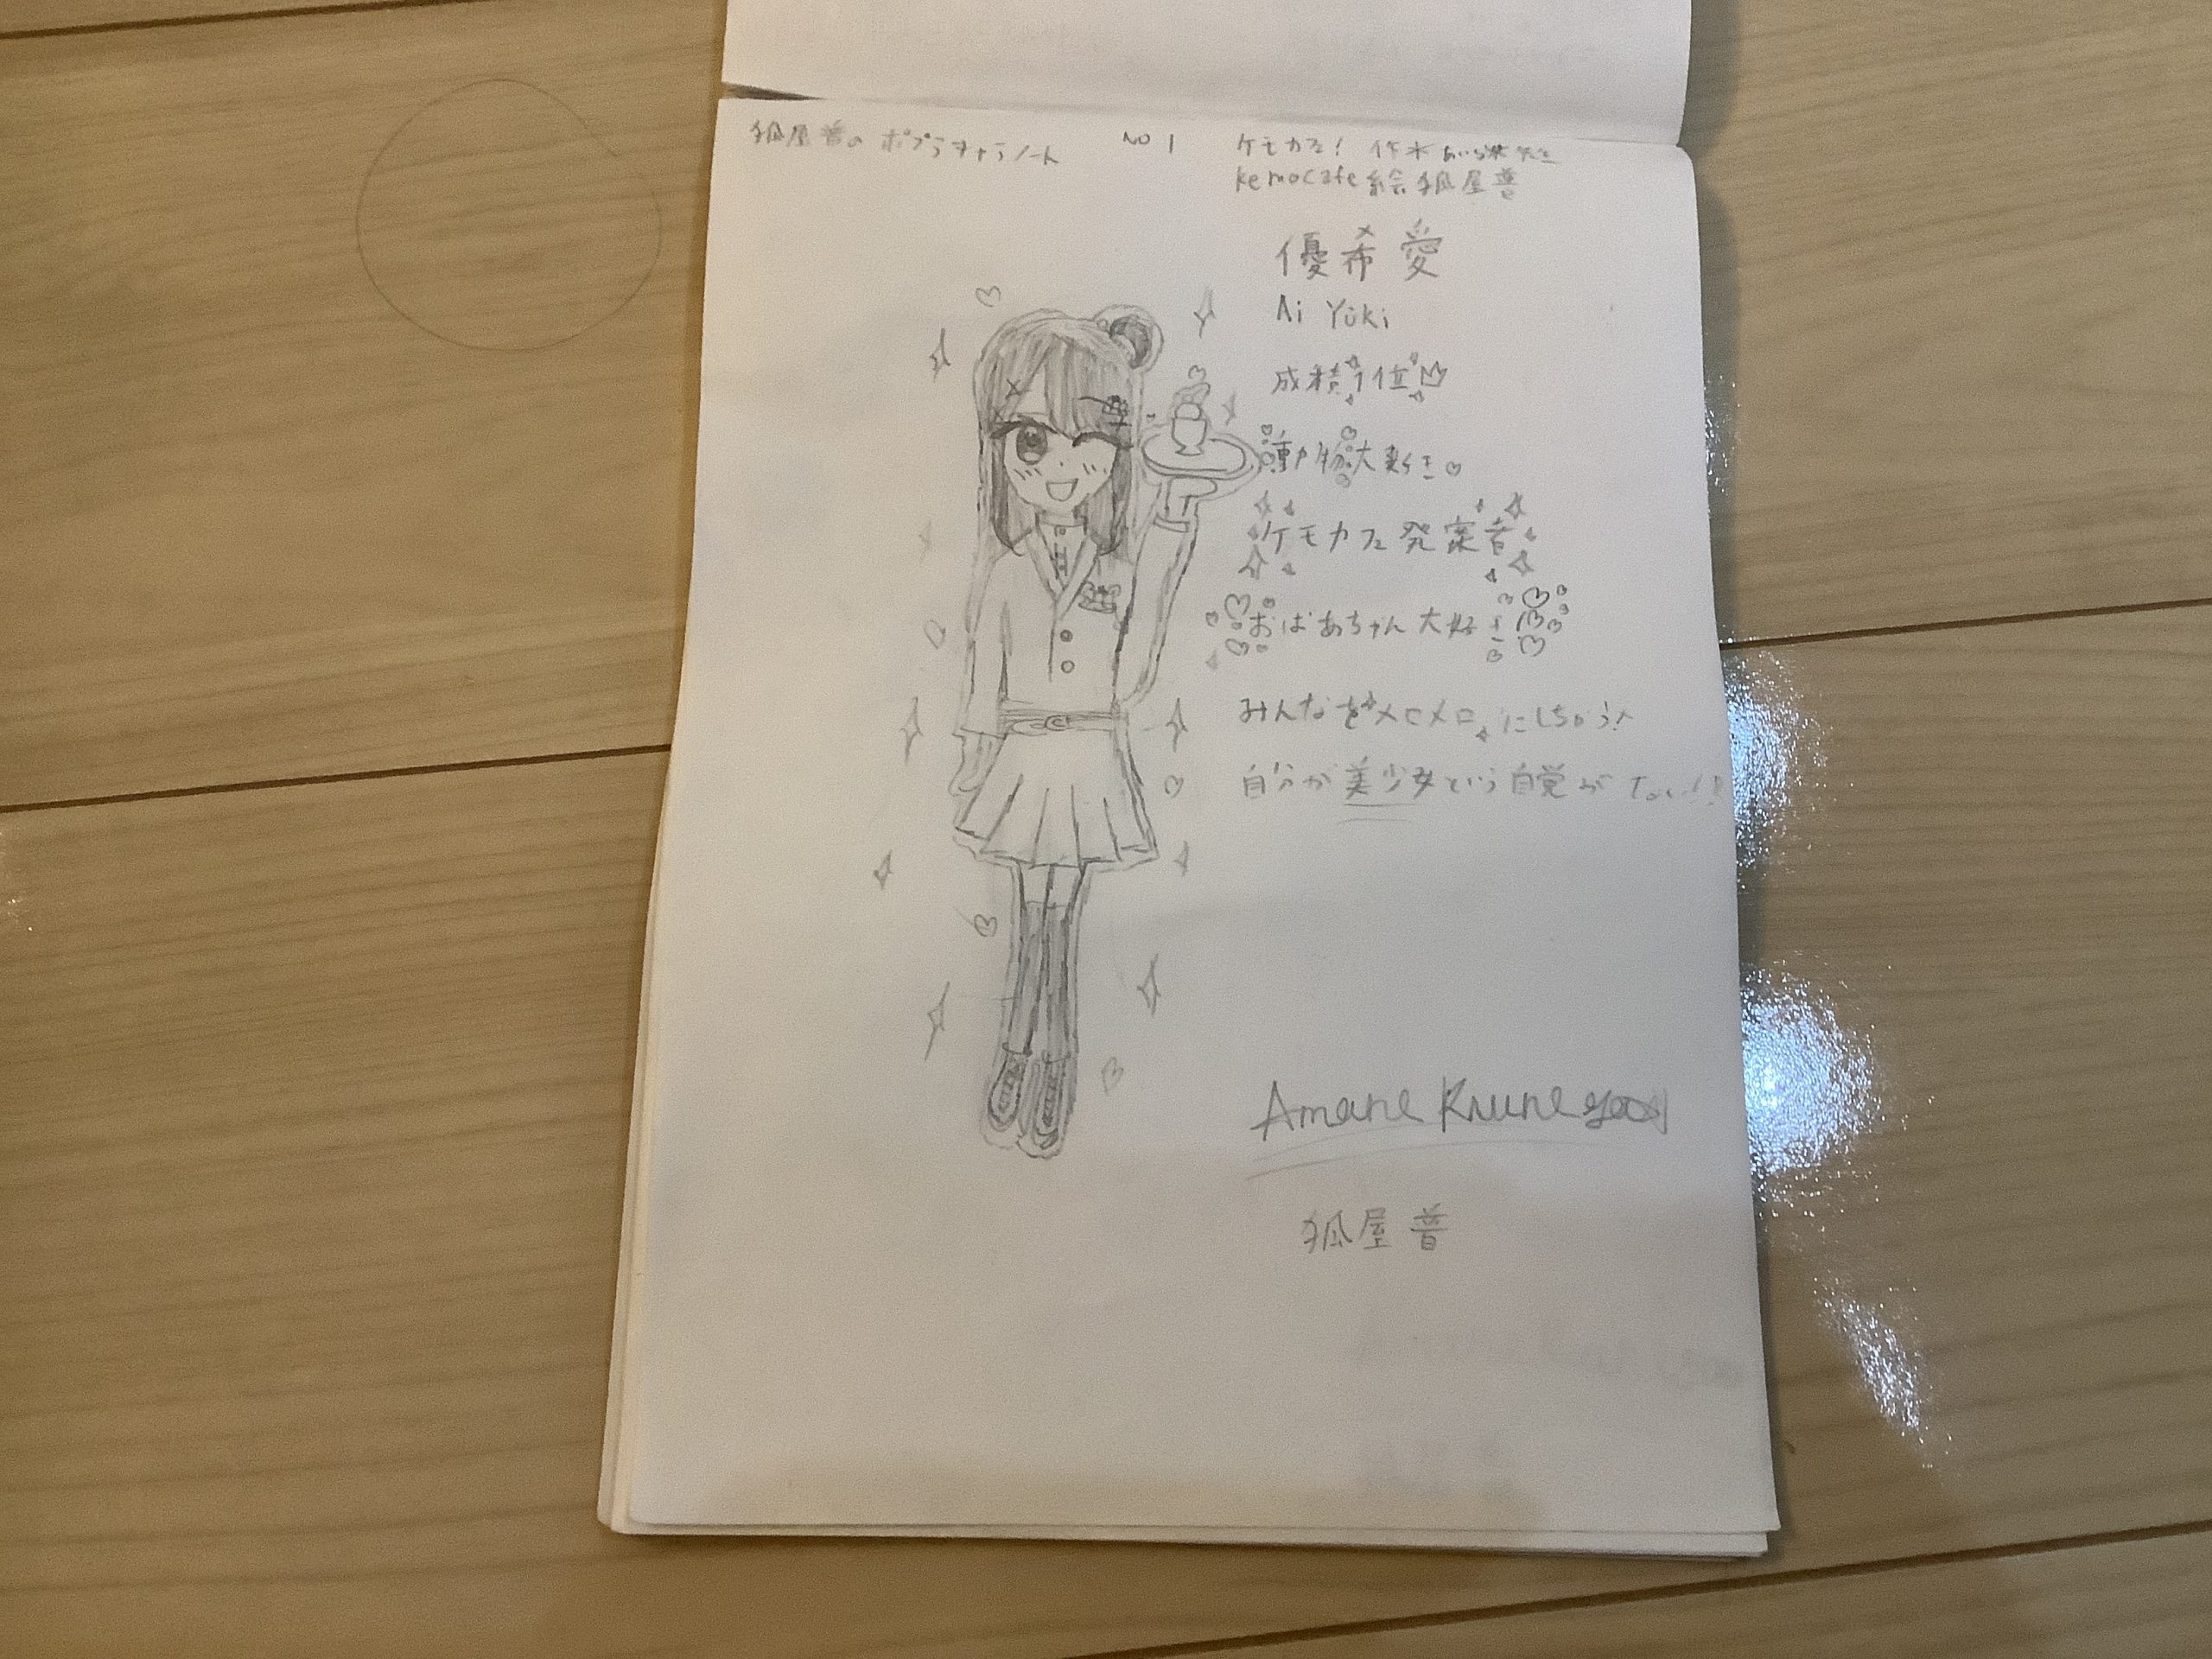 狐屋普のポプラキャラノート No 1
ケモカフェ! 作 木 あいら 先生
kemocafe 絵 狐屋普
優希 愛
Ai Yuki
成績1位
動物大好き
ケモカフェ発案者
おばあちゃん大好き
みんなをメロメロにしちゃう!
自分が美少女という自覚がない!?
Amane
狐屋 普